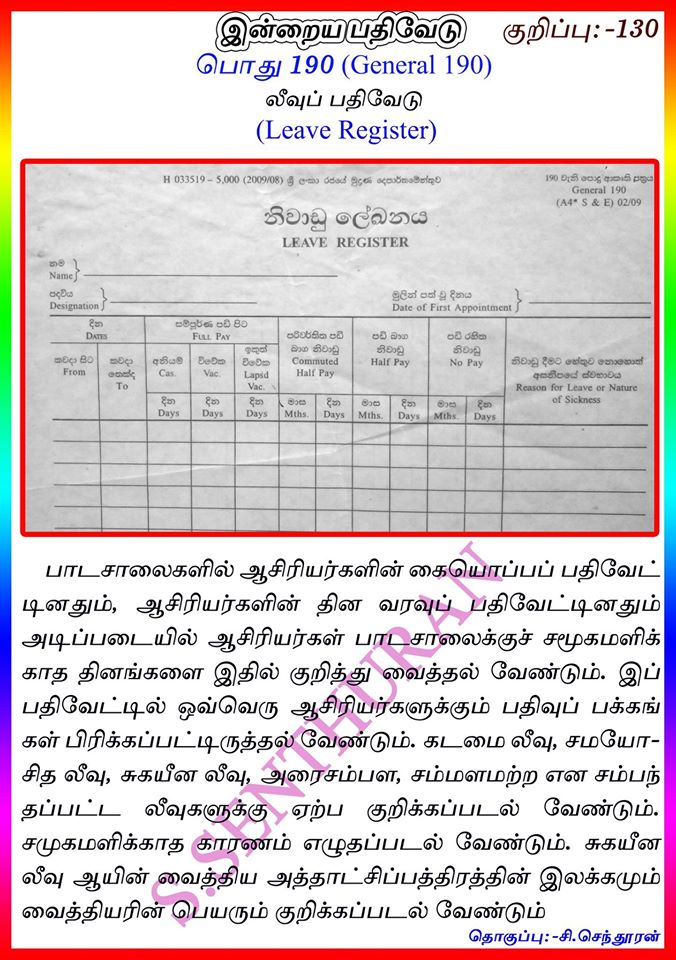 இன்றைய பதிவேடு
குறிப்பு: -130
பொது 190 (General 190)
லீவுப் பதிவேடு
(Leave Register)
H 033519 – 5,000 (2009/08) ශ්‍රී ලංකා රජයේ මුද්‍රණ දෙපාර්තමේන්තුව
190 වැනි පොදු ආකෘති පත්‍රය
General 190
(A4* S & E) 02/09
නිවාඩු ලේඛනය
LEAVE REGISTER
නම
Name
පදවිය
Designation
මුලින් පත් වූ දිනය
Date of First Appointment
දින
DATES
සම්පූර්ණ පඩි පිට
FULL PAY
පරිවර්තිත පඩි
බාග නිවාඩු
Commuted
Half Pay
පඩි බාග
නිවාඩු
Half Pay
පඩි රහිත
නිවාඩු
No Pay
නිවාඩු දීමට හේතුව නොහොත්
අසනීපයේ ස්වභාවය
Reason for Leave or Nature
of Sickness
කවදා සිට
From
කවදා
තෙක්ද
To
අනියම්
Cas.
විවේක
Vac.
ඉකුත්
විවේක
Lapsd
Vac.
දින
Days
දින
Days
දින
Days
මාස
Mths.
දින
Days
මාස
Mths.
දින
Days
මාස
Mths.
දින
Days
பாடசாலைகளில் ஆசிரியர்களின் கையொப்பப் பதிவேட்
டினதும், ஆசிரியர்களின் தின வரவுப் பதிவேட்டினதும்
அடிப்படையில் ஆசிரியர்கள் பாடசாலைக்குச் சமூகமளிக்
காத தினங்களை இதில் குறித்து வைத்தல் வேண்டும். இப்
பதிவேட்டில் ஒவ்வெரு ஆசிரியர்களுக்கும் பதிவுப் பக்கங்
கள் பிரிக்கப்பட்டிருத்தல் வேண்டும். கடமை லீவு, சமயோ-
சித லீவு, சுகயீன லீவு, அரைசம்பள, சம்மளமற்ற என சம்பந்
தப்பட்ட லீவுகளுக்கு ஏற்ப குறிக்கப்படல் வேண்டும்.
சமுகமளிக்காத காரணம் எழுதப்படல் வேண்டும். சுகயீன
லீவு ஆயின் வைத்திய அத்தாட்சிப்பத்திரத்தின் இலக்கமும்
வைத்தியரின் பெயரும் குறிக்கப்படல் வேண்டும்
S.SENTHURAN
தொகுப்பு:-சி.செந்தூரன்